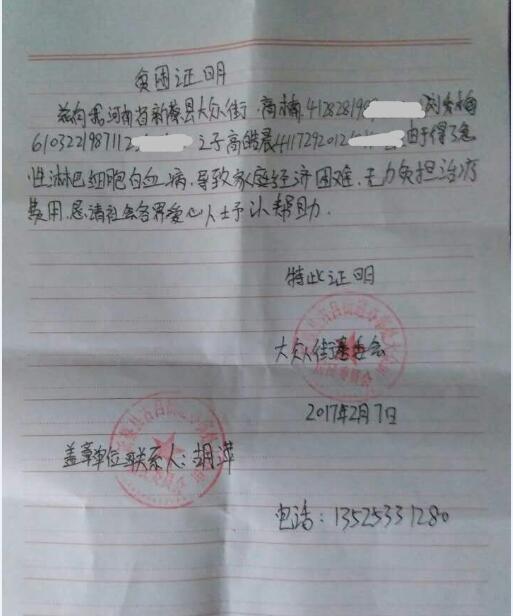 贫困证明
兹有我河南省新蔡县大众街 高楠,41282819 刘春梅
6103221987112 之子高皓晨411729201 由于得了急
性淋巴细胞白血病,导致家庭经济困难,无力负担治疗
费用,恳请社会各界爱心人士予以帮助.
特此证明
大众街委会
2017年2月7日
盖章单位联系人:胡萍
电话:13525331280